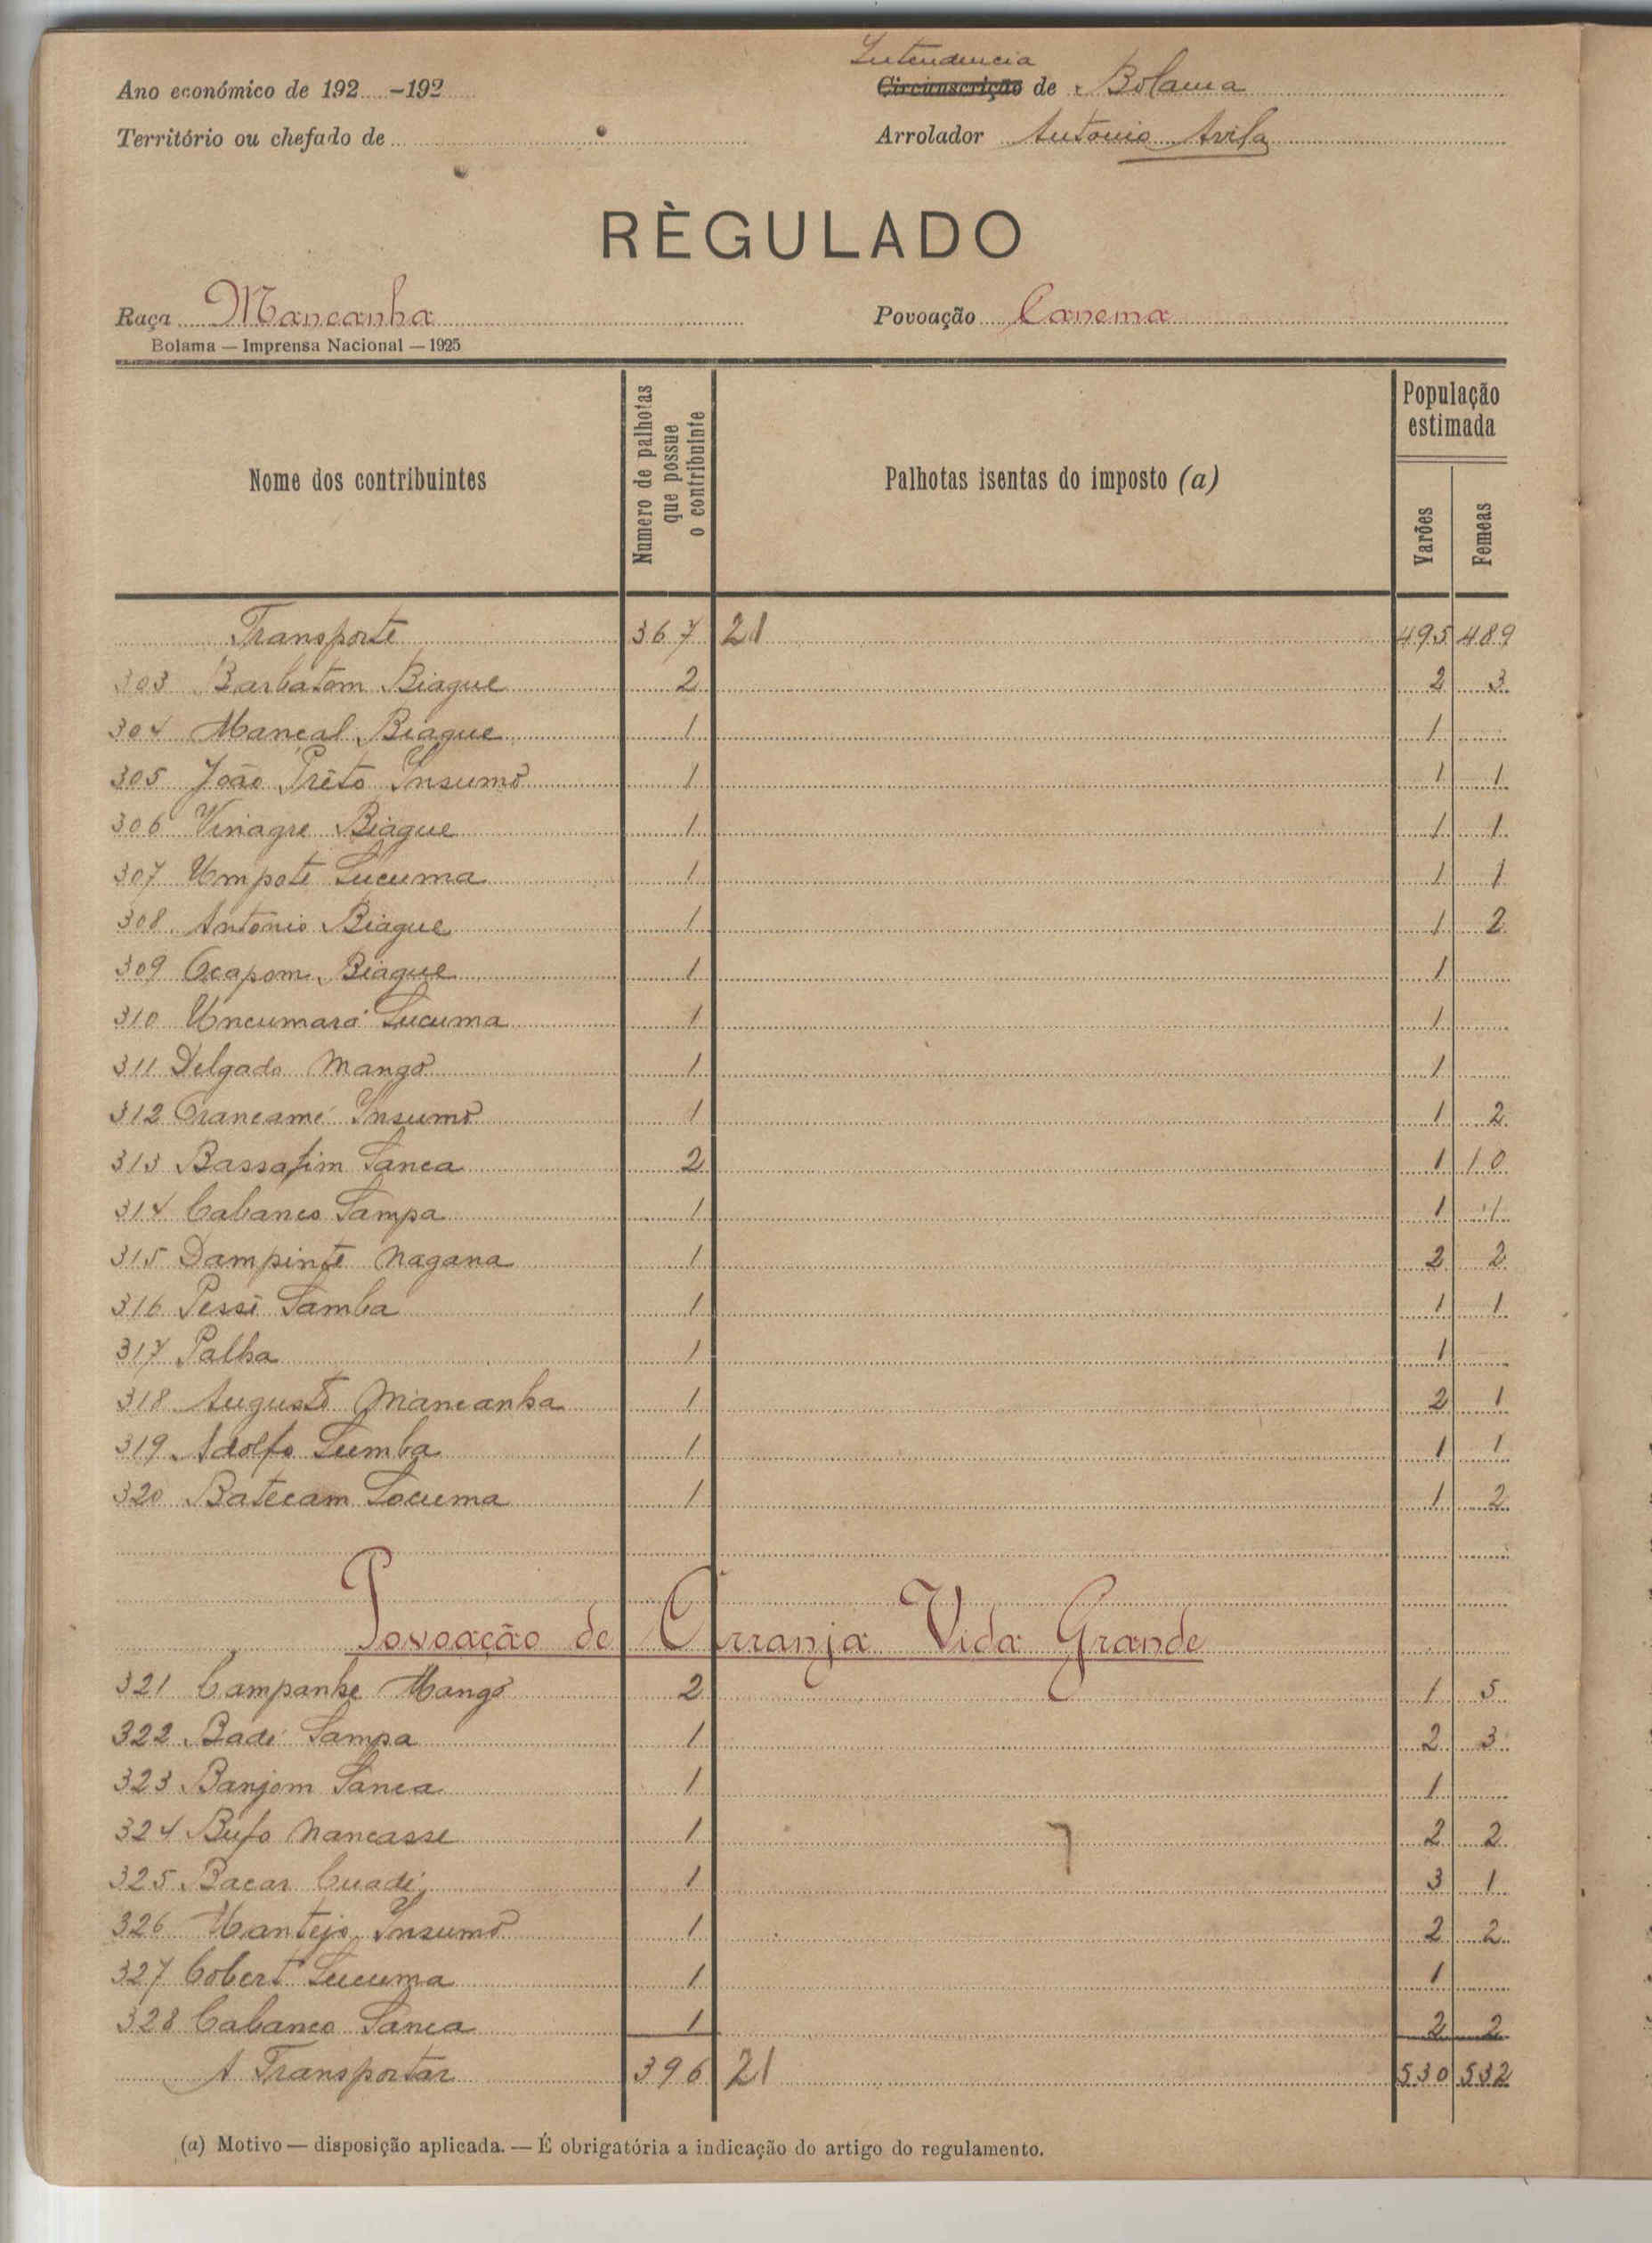 Ano económico de 192 -192
Intendencia
Circunscrição de Bolama
Território ou chefado de
Arrolador Antonio Avila
RÈGULADO
Raça Mancanha
Povoação Canema
Bolama — Imprensa Nacional — 1925
Nome dos contribuintes
Numero de palhotas que possue o contribuinte
Palhotas isentas do imposto (a)
População estimada
Varões
Femeas
Transporte 367 21 495 489
303 Barbatom Biague 2 2 3
304 Mancal Biague 1 1
305 João Prêto Insumo 1 1 1
306 Vinagre Biague 1 1 1
307 Umpote Lucuma 1 1 1
308 Antonio Biague 1 1 2
309 Ocapom Biague 1 1
310 Uncumará Lucuma 1 1
311 Delgado Mango 1 1
312 Francamé Insumo 1 1 2
313 Bassafim Sanca 2 1 10
314 Cabanco Sampa 1 1 1
315 Dampinte Nagana 1 2 2
316 Pessi Samba 1 1 1
317 Palha 1 1
318 Augusto Mancanha 1 2 1
319 Adolfo Lumba 1 1 1
320 Batecam Locuma 1 1 2
Povoação de Arranja Vida Grande
321 Campanhe Mango 2 1 5
322 Badi Sampa 1 2 3
323 Banjom Sanca 1 1
324 Bufo Nancasse 1 2 2
325 Bacar Cuadi 1 3 1
326 Mantejo Insumo 1 2 2
327 Cobert Lucuma 1 1
328 Cabanco Sanca 1 2 2
A Transportar 396 21 530 532
(a) Motivo — disposição aplicada. — É obrigatória a indicação do artigo do regulamento.